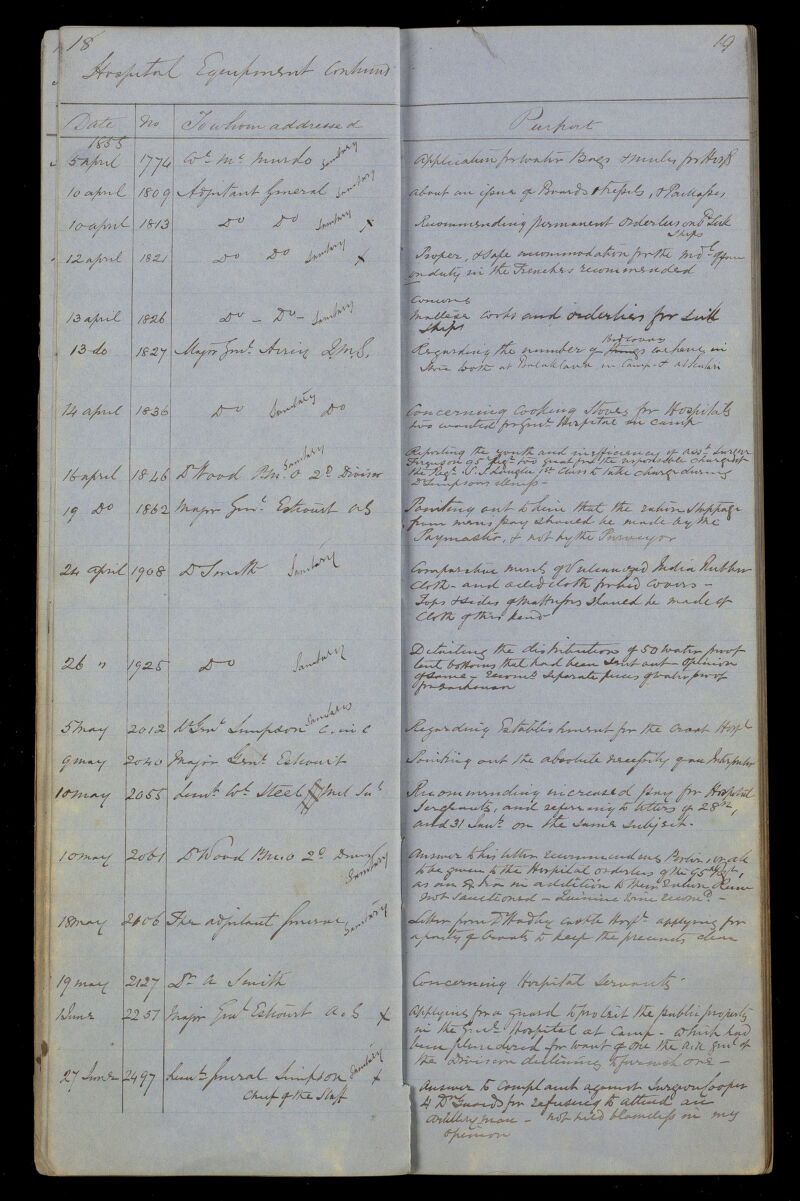 18
Hospital Equipment Continued
Date No To whom addressed
1855
5 april 1774 Wm Mc Murdo Sanitary
10 april 1809 Adjutant General Sanitary
10 april 1813 Do Do Sanitary x
12 april 1821 Do Do Sanitary x
13 april 1826 Do - Do - Sanitary
13 do 1827 Major Genl Airey Q.M.G.
14 april 1836 Do Sanitary Do
16 april 1846 Dr Wood P.M.O 2d Division Sanitary
19 Do 1862 Major Genl Estcourt A G
24 april 1908 Dr Smith Sanitary
26 " 1925 Do Sanitary
5 May 2012 Lt Genl Simpson C. in C Sanitary
9 may 2040 Major Genl Estcourt
10 may 2055 Lieut Col Steel Mil Secy
10 may 2061 Dr Wood P.M.O 2d Divn Sanitary
18 may 2106 The adjutant General Sanitary
19 may 2127 Dr A Smith
1 June 2257 Major Genl Estcourt A. G x
27 June 2497 Lieut General Simpson Sanitary x
Chief of the Staff
19
Purport
Application for water Bags & mules for Hospl
about an issue of Boards & Tressels, & Packages
Recommending permanent orderlies on Bd Sick
Ships
Proper, & safe accommodation for the Medl Officers
on duty in the Trenches recommended
Concerning
Maltese Cooks and orderlies for Sick
Ships
Regarding the number of Bed Covers we have in
Store both at Balaklava in Camp & at Scutari
Concerning Cooking Stoves for Hospitals
two wanted for Genl Hospital in Camp
Reporting the youth and inefficiency of Asst Surgeon
Ferguson 95 Regt
the Regt 1st Class to take charge during
Dr Simpsons illness -
Pointing out to him that the ration Stoppage
from mens pay should be made by the
Paymaster, & not by the Purveyor
Comparative merits of Vulcanized India Rubber
Cloth - and oiled cloth for bed covers -
Tops & sides of Mattresses should be made of
Cloth of this kind
Detailing the distribution of 50 water proof
tent bottoms that had been sent out - Opinion
of same - recomd separate pieces of water proof
for each man
Regarding Establishment for the Croat Hospl
Pointing out the absolute necessity of an Interpreter
Recommending increased pay for Hospital
Sergeants, and referring to letters of 28th,
and 31 Jany on the same subject.
Answer to his letter recommending Porter, or ale
to be given to the Hospital orderlies of the 95th Regt,
as an Extra in addition to their ration Rum
not sanctioned - Quinine Wine recomd -
Letter from Dr Hadley Castle Hospl applying for
a party of Croats to keep the precincts clean
Concerning Hospital Servants
Applying for a guard to protect the public property
in the Genl Hospital at Camp - which had
been plundered for want of one the A.A. Genl of
the Division declining to furnish one -
Answer to complaint against Surgeon Cooper
4 Dn Guards for refusing to attend an
Artillery man - not held blameless in my
opinion